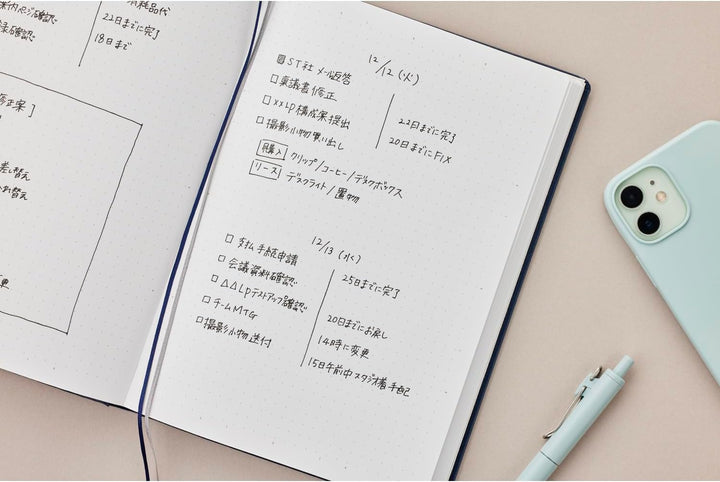 消耗品代
22日までに完了
18日まで
確認
録確認
修正案]
差し替え
替え
変更
12/12 (火)
ST社 メール返答
□稟議書修正
□××LP構成案提出
22日までに完了
□撮影小物買い出し
20日までにFIX
購入 クリップ/コーヒー/デスクボックス
リース デスクライト/置物
12/13 (水)
□支払手続申請
25日までに完了
□会議資料確認
□△△LPテストアップ確認
20日までにお戻し
□チームMTG
14時に変更
□撮影小物送付
15日午前中スタジオ着手配